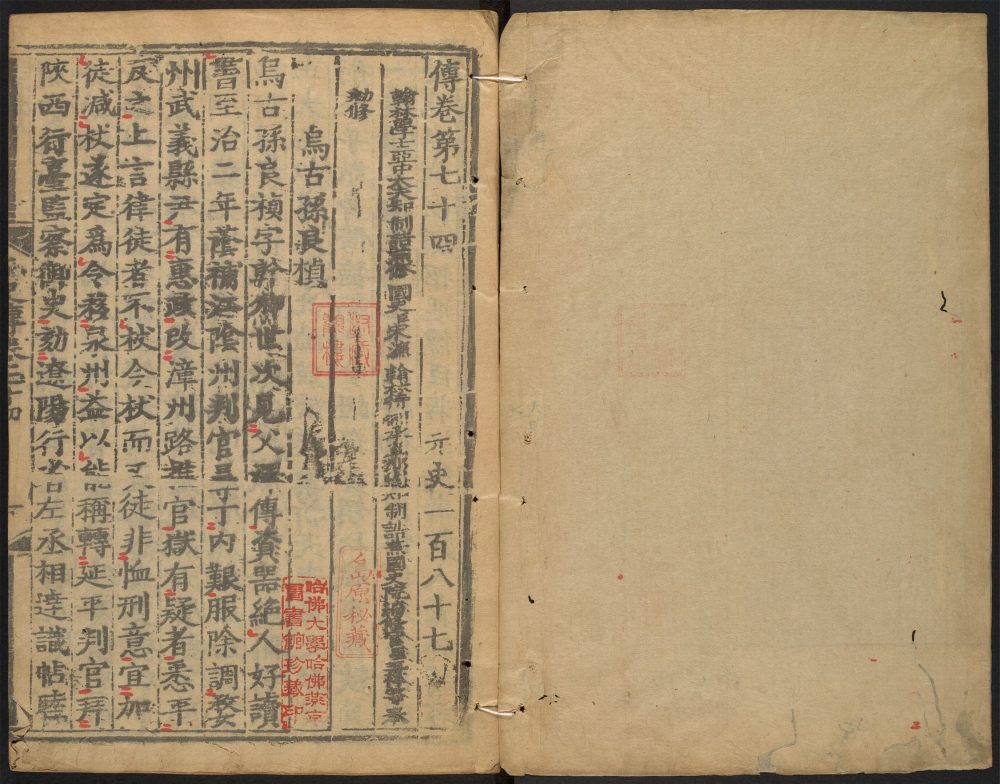 傳卷第七十四 元史一百八十七
翰林學士亞中大夫知制誥兼修國史臣宋濂 翰林待制承直郎同知制誥兼國史院編修官臣王禕等奉
勑修
烏古孫良楨
烏古孫良楨字幹卿世次見父澤傳資器絶人好讀
書至治二年蔭補江陰州判官尋丁內艱服除調婺
州武義縣尹有惠政改漳州路推官獄有疑者悉平
反之上言律徒者不杖今杖而又徒非恤刑意宜加
徒減杖遂定爲令移泉州益以能稱轉延平判官拜
陜西行臺監察御史劾遼陽行省左丞相達識帖睦
哈佛大學哈佛燕京
圖書館珍藏印
秘藏